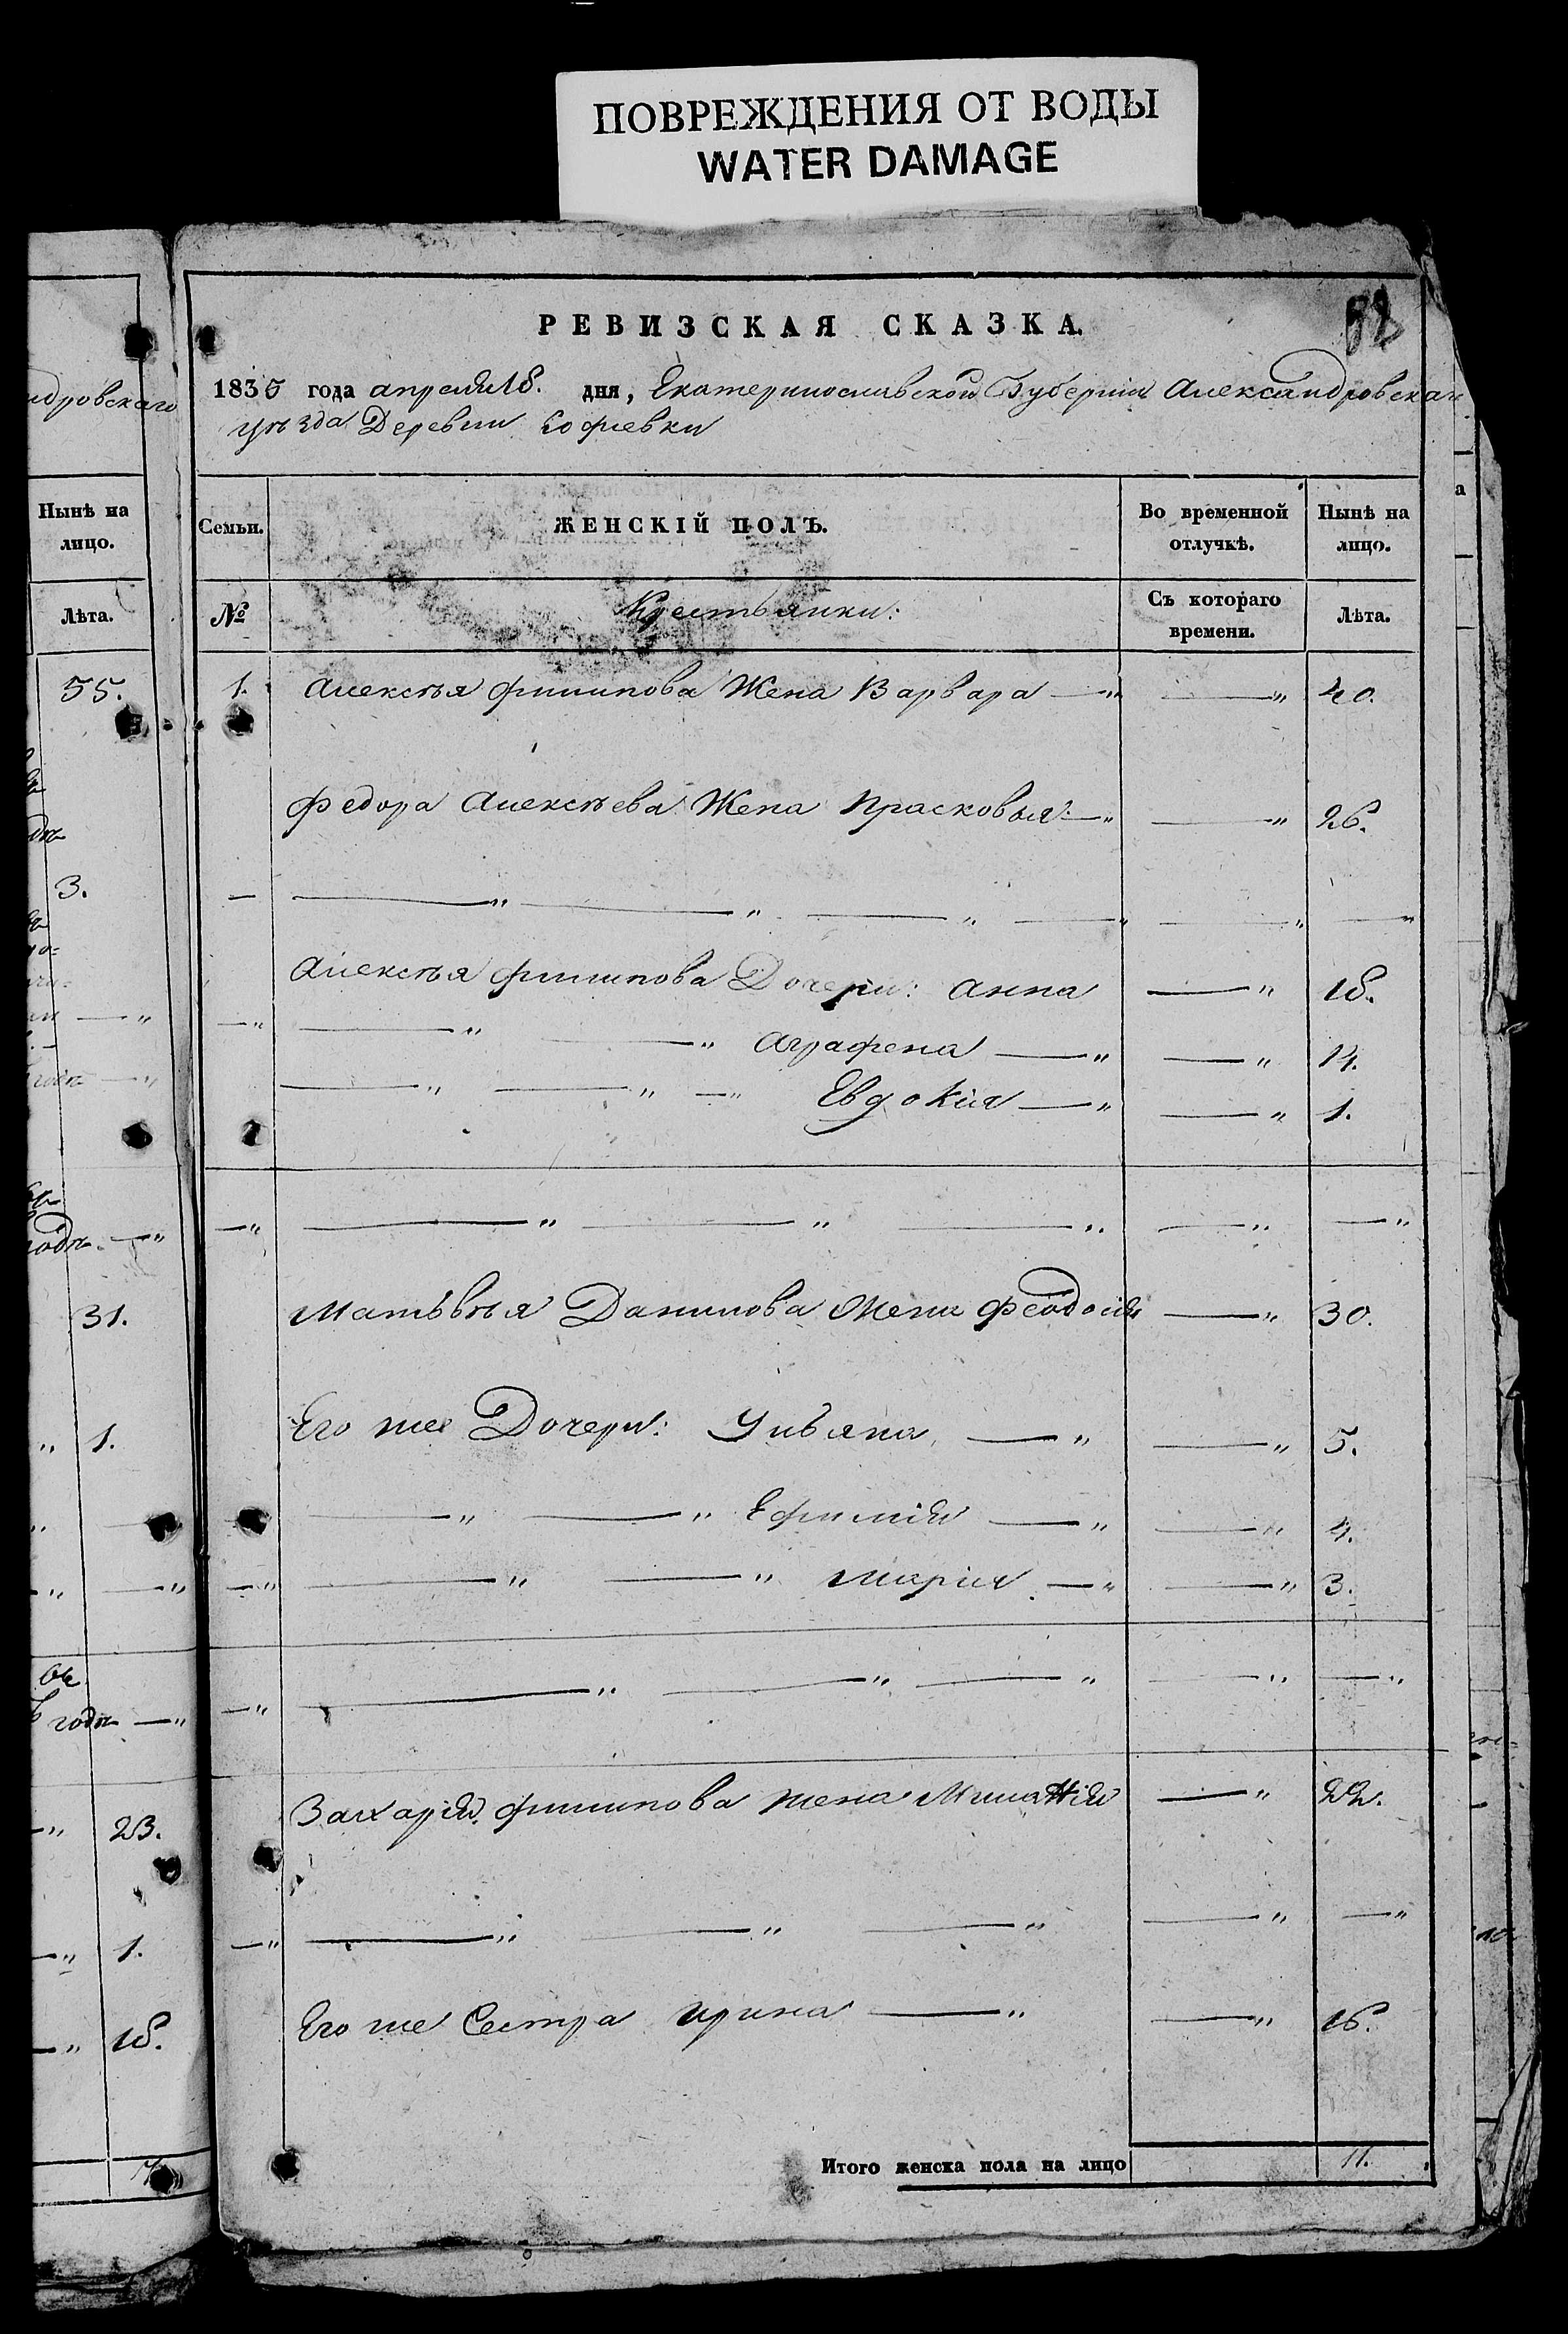 ПОВРЕЖДЕНИЯ ОТ ВОДЫ
WATER DAMAGE
РЕВИЗСКАЯ СКАЗКА.
1835 года апреля 18. дня, Екатеринославской Губернии Александровскаго
уѣзда Деревни Софиевки
ндровскаго
Нынѣ на лицо.
Лѣта.
55.
3.
31.
1.
годѣ
23.
1.
18.
Семьи. ЖЕНСКІЙ ПОЛЪ. Во временной отлучкѣ. Нынѣ на лицо.
№ Крестьянки: Съ котораго времени. Лѣта.
1. Алексѣя Филипова Жена Варвара —„ —„ 40.
Федора Алексѣева Жена Прасковья —„ —„ 26.
— —„ —„ —„ —„ —„ —„
Алексѣя Филипова Дочери: Анна —„ 18.
—„ —„ —„ Аграфена —„ —„ 14.
—„ —„ —„ Евдокия —„ —„ 1.
—„ —„ —„ —„ —„ —„
Матьвѣя Данилова Жена Феодосия —„ 30.
Его же Дочери: Ульяна —„ —„ 5.
—„ —„ Ефимия —„ —„ 4.
—„ —„ —„ Мария —„ —„ 3.
—„ —„ —„ —„ —„ —„
Захария Филипова жена —„ 22.
—„ —„ —„ —„ —„ —„
Его же Сестра Ирина —„ —„ 16.
Итого женска пола на лицо 11.